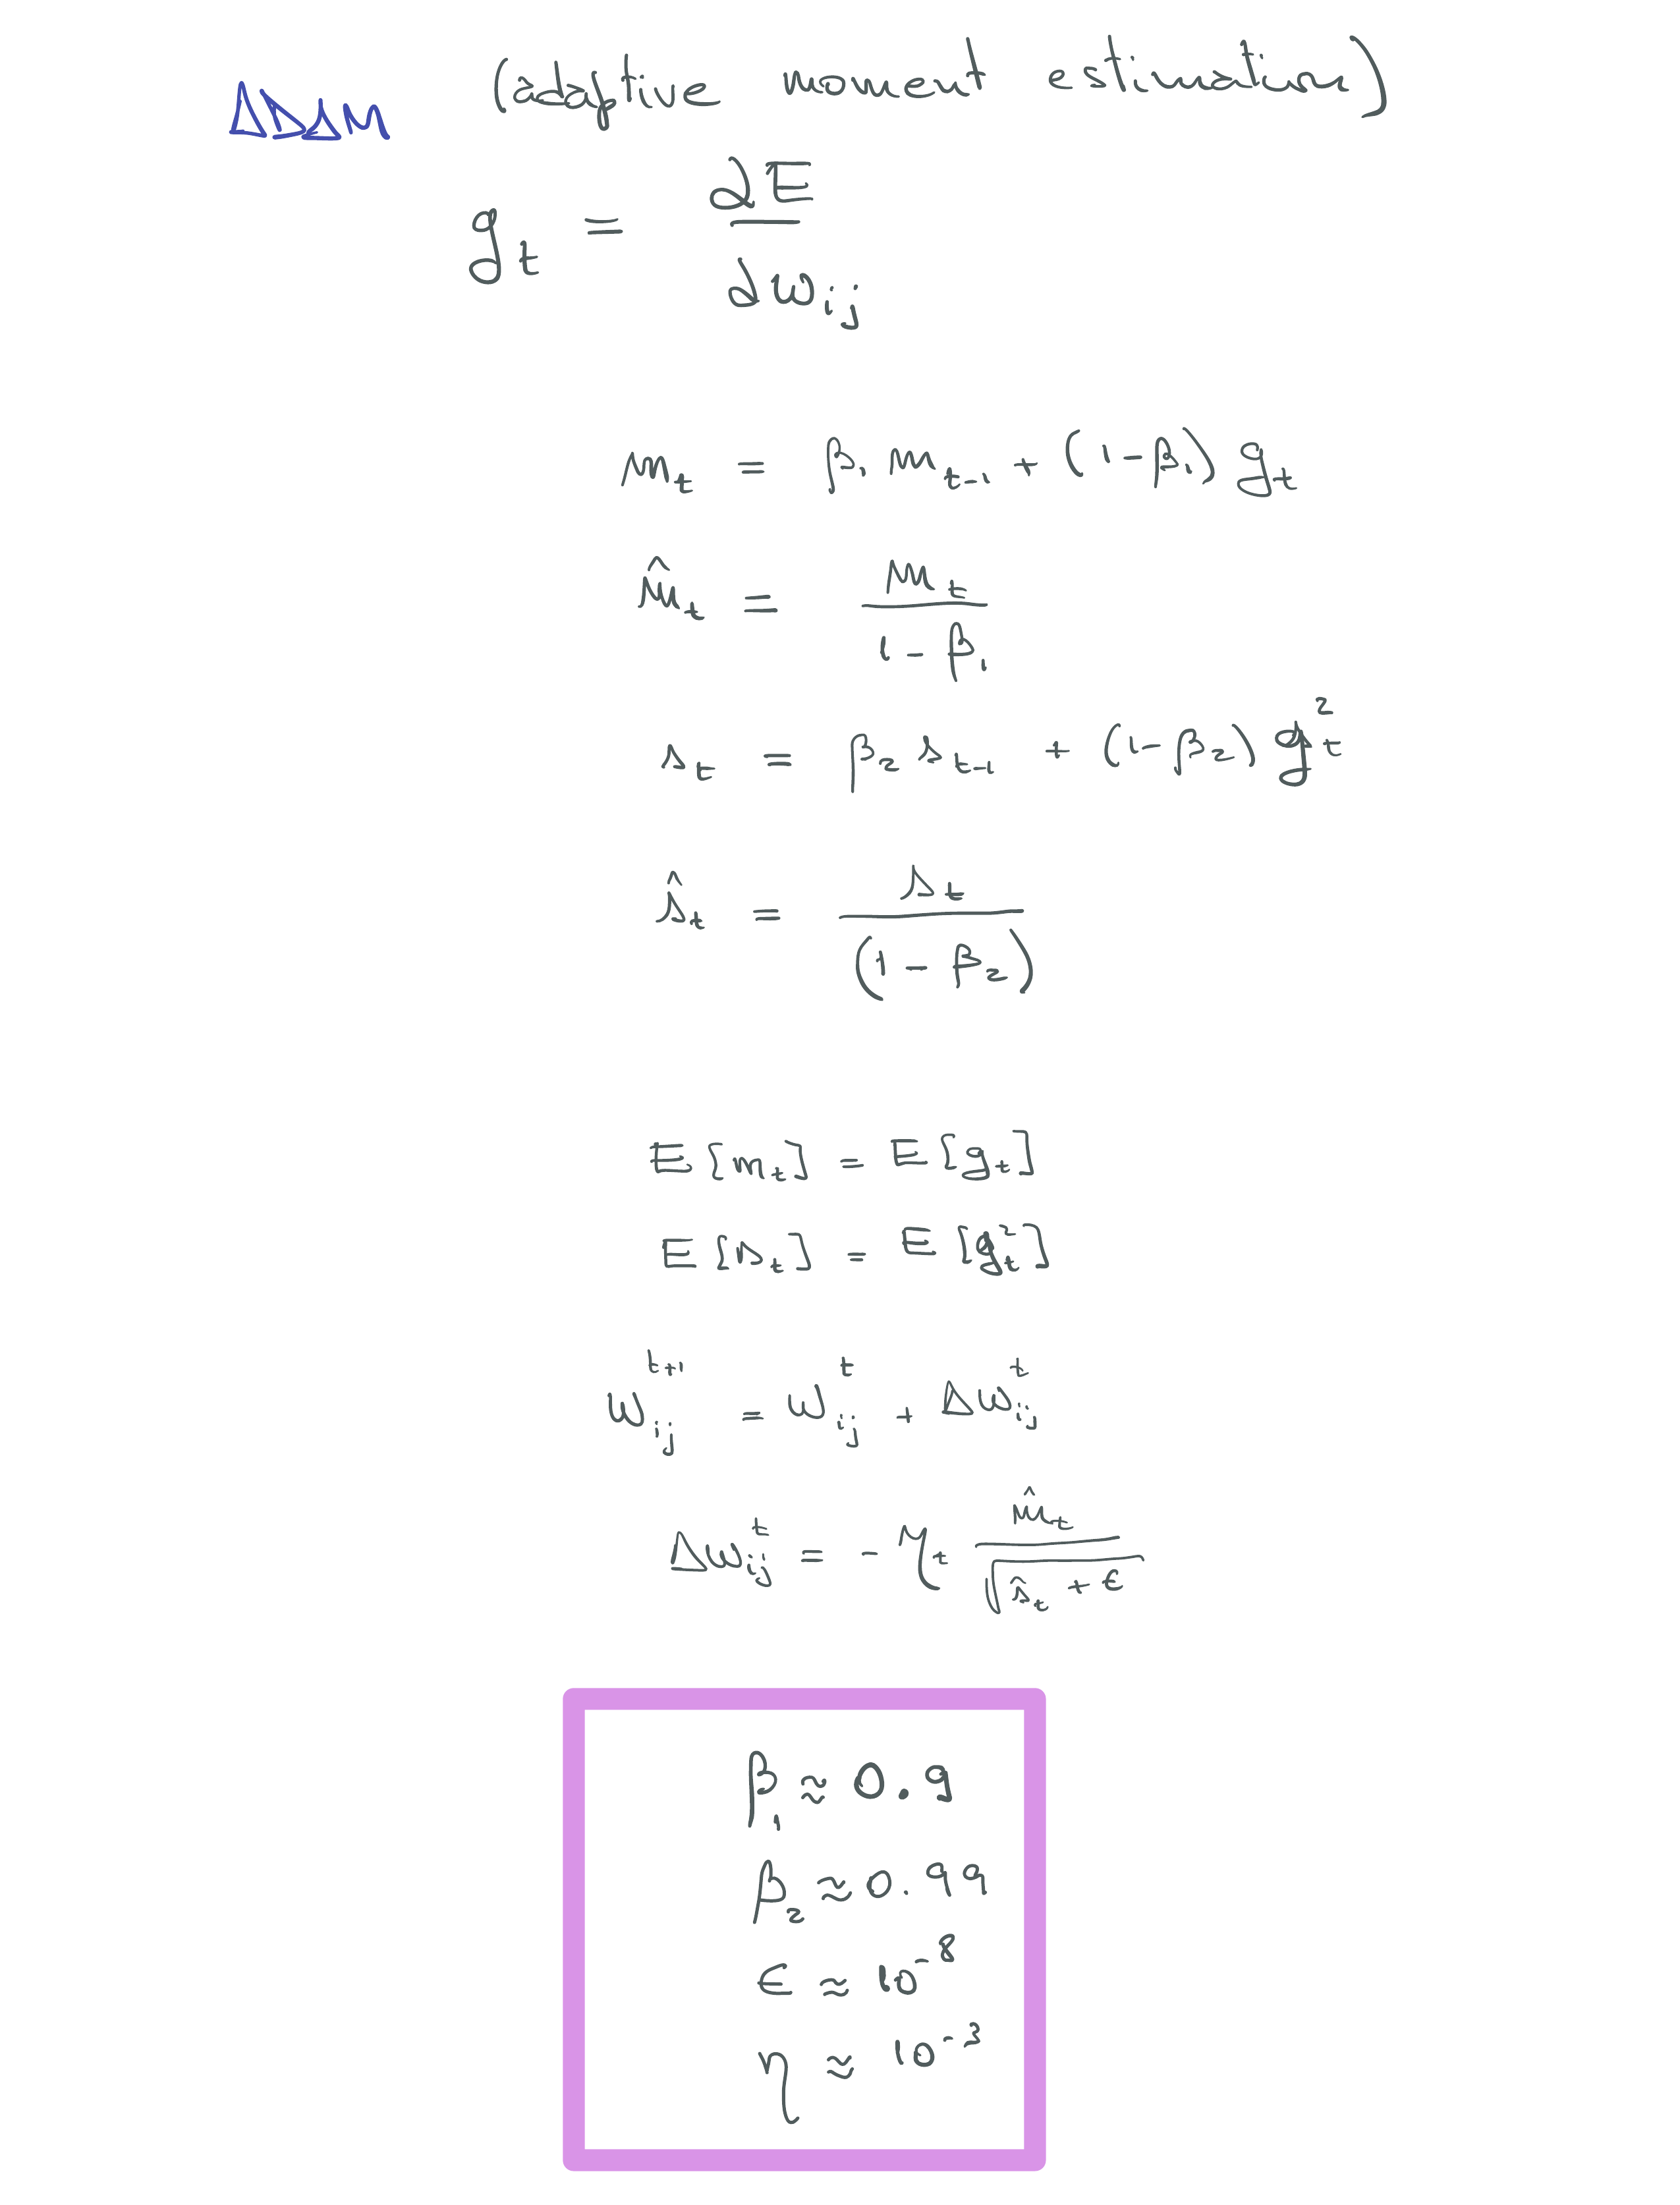 ADAM (adaptive moment estimation)
g_t = ∂E / ∂w_ij
m_t = β_1 m_{t-1} + (1-β_1) g_t
m̂_t = m_t / (1 - β_1)
s_t = β_2 s_{t-1} + (1-β_2) g_t^2
ŝ_t = s_t / (1 - β_2)
E[m_t] = E[g_t]
E[s_t] = E[g_t^2]
w_ij^{t+1} = w_ij^t + Δw_ij^t
Δw_ij^t = - η_t m̂_t / √(ŝ_t + ϵ)
β_1 ≈ 0.9
β_2 ≈ 0.99
ϵ ≈ 10^-8
η ≈ 10^-3